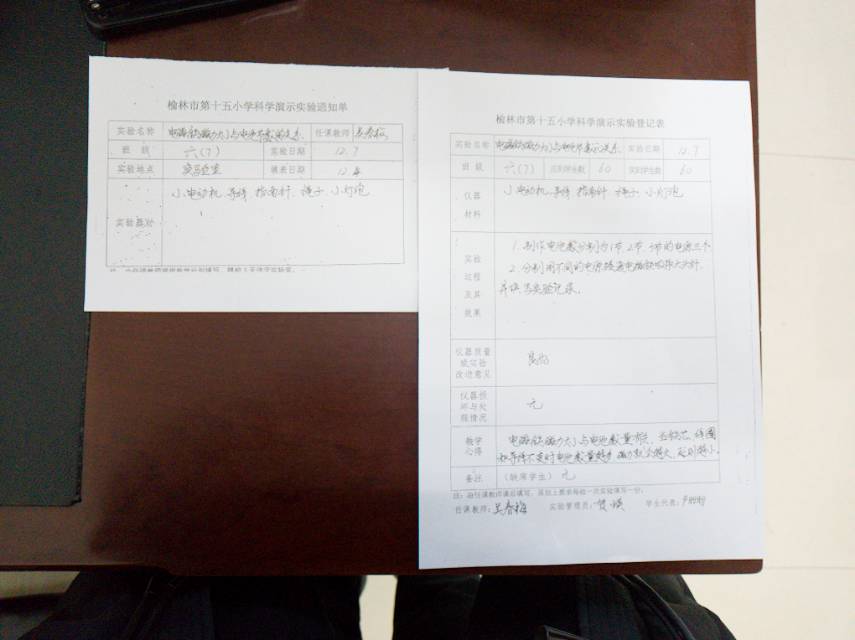 榆林市第十五小学科学演示实验通知单
实验名称 电磁铁磁力大小与电池节数的关系 任课教师 吴春梅
班级 六(7) 实验日期 12.7
实验地点 实验室 填表日期 12.4
实验器材 小电动机 导线 指南针 绳子 小灯泡
榆林市第十五小学科学演示实验登记表
实验名称 实验日期 12.7
班级 六(7) 应到学生数 60 实到学生数 60
仪器材料 小电动机 导线 指南针 绳子 小灯泡
实验过程及其效果
1. 制作电池数分别为1节 2节 的电源三个
2. 分别用不同的电源接通电磁铁吸取大头针
并填写实验记录。
仪器质量或实验改进意见 良好
仪器损坏与处理情况 无
教学心得 电磁铁磁力大小与电池数量有关, 在铁芯 线圈
和导线不变时电池数量越多 磁力就会越大, 反则越小。
备注 (缺席学生) 无
注:由任课教师课后填写,原则上要求每做一次实验填写一份。
任课教师: 吴春梅 实验管理员: 学生代表: